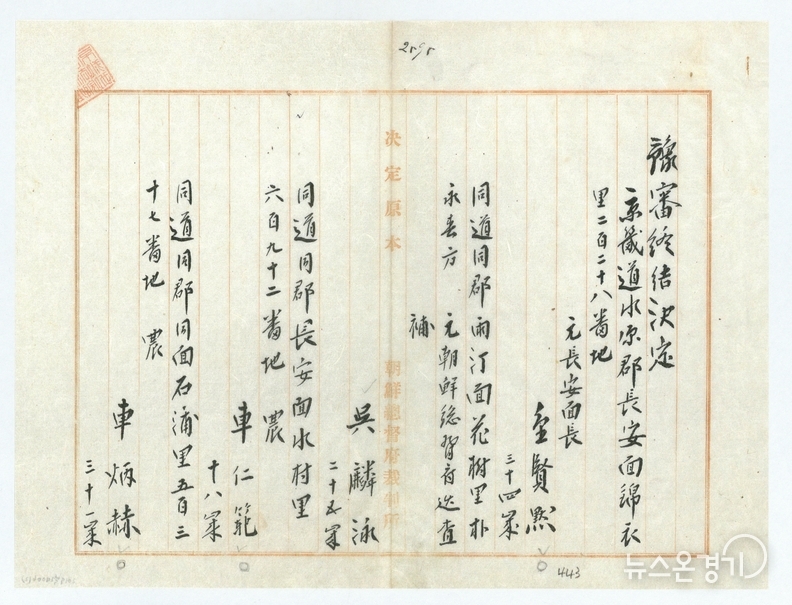 豫審終結決定
京畿道水原郡長安面錦衣
里二百二十八番地
元長安面長
金賢黙
三十四歲
同道同郡雨汀面花樹里朴
永春方
元朝鮮總督府巡査
補
吳麟泳
二十五歲
同道同郡長安面水村里
六百九十二番地
農
車仁範
十八歲
同道同郡同面石浦里五百三
十七番地
農
車炳赫
三十一歲
決定原本
朝鮮總督府裁判所
443
뉴스온경기